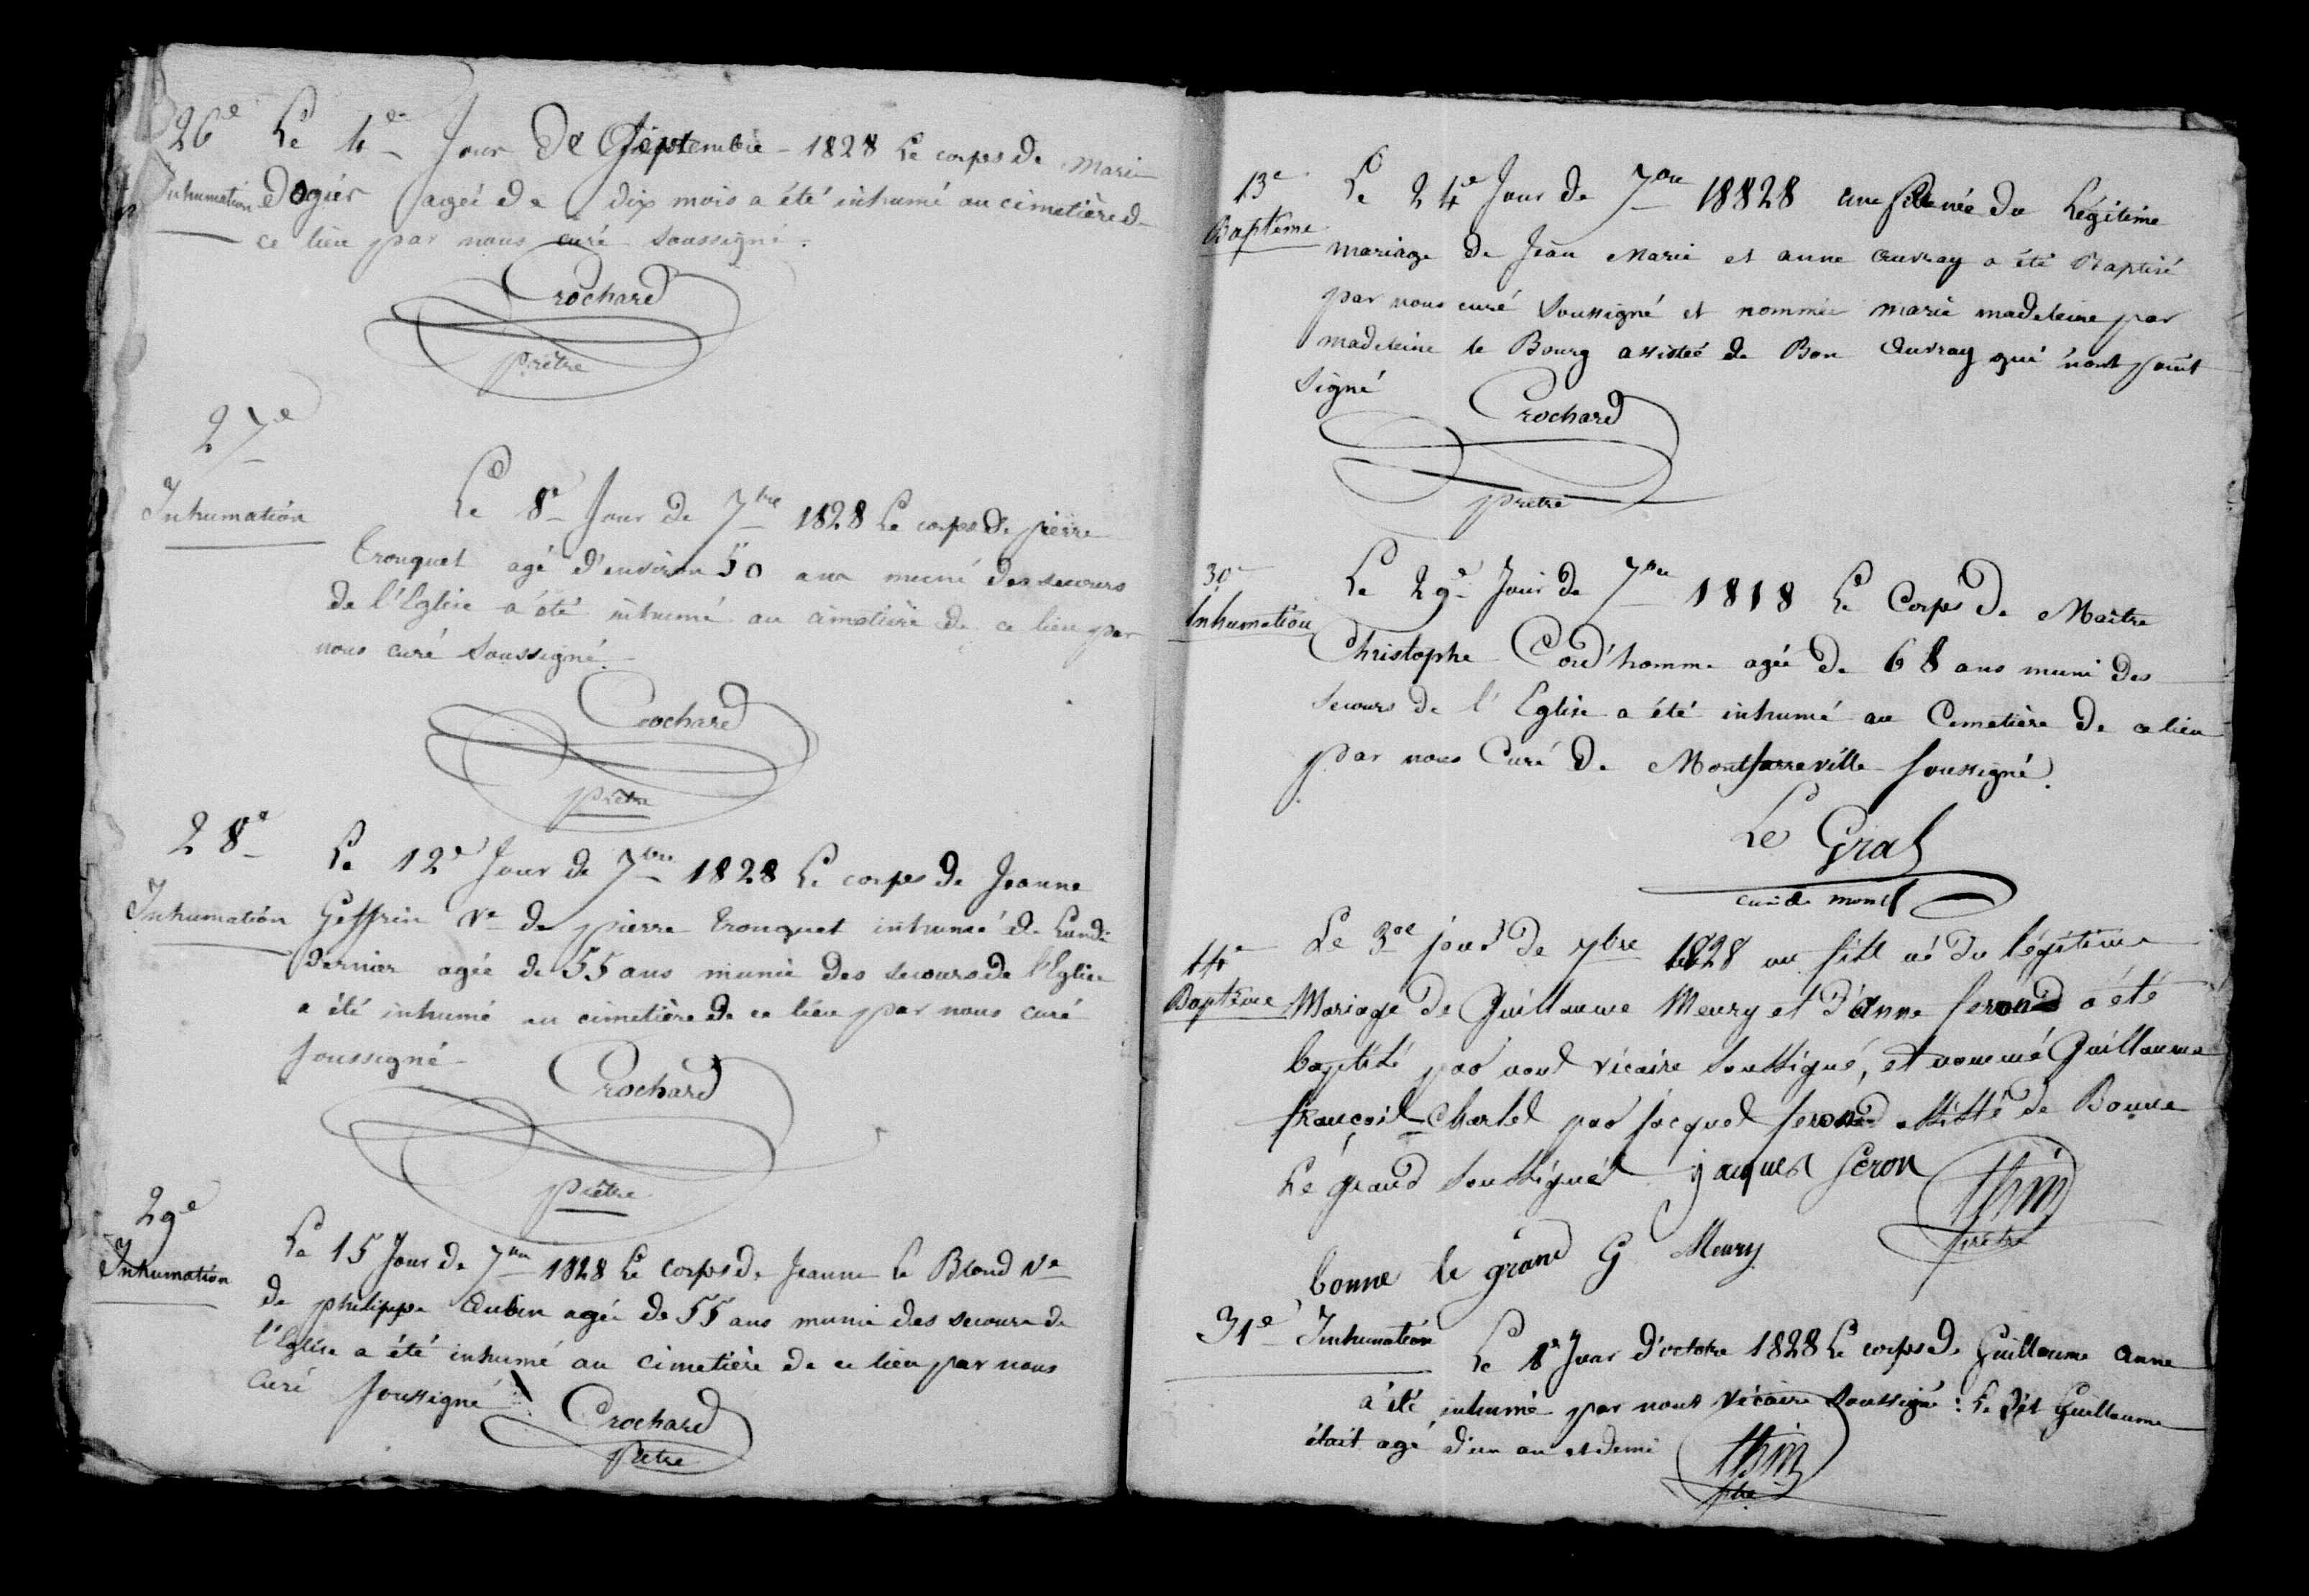 26e Le 4e Jour De Septembre - 1828 Le corps de Marie
Inhumation Dogier agée de dix mois a été inhumé au cimetière d
ce lieu par nous curé soussigné.
Crochard
prêtre
27e
Inhumation
Le 8e Jour de 7bre 1828 Le corps de pierre
Trouquet agé d'environ 50 ans muni des secours
de l'Eglise a été inhumé au cimetière de ce lieu par
nous curé soussigné.
Crochard
prêtre
28e
Le 12e Jour de 7bre 1828 Le corps de Jeanne
Inhumation Geffrin Ve de pierre Trouquet inhumé de Lundi
Dernier agée de 55 ans munie des secours de l'Eglise
a été inhumé au cimetière de ce lieu par nous curé
soussigné
Crochard
prêtre
29e
Inhumation
Le 15 Jour de 7bre 1828 Le corps de Jeanne Le Blond Ve
de philippe Aubin agée de 55 ans munie des secours de
l'Eglise a été inhumé au cimetière de ce lieu par nous
curé soussigné
Crochard
prêtre
13e
Baptême
Le 24e Jour de 7bre 18828 une fille née du Légitime
mariage de Jean Marie et anne Auvray a été Baptisé
par nous curé soussigné et nommée marie madeleine par
madeleine le Bourg assistée de Bon Auvray qui n'ont point
signé
Crochard
prêtre
30e
Inhumation
Le 29e Jour de 7bre 1818 Le Corps de Maître
Christophe Cord'homme agée de 68 ans muni des
secours de l'Eglise a été inhumé au Cimetière de ce lieu
par nous Curé de Montfarreville soussigné.
Le Gral
curé de montf
14e
Baptême
Le 30e jour de 7bre 1828 un fils né du légitime
Mariage de Guillaume Meury et d'Anne feron a été
baptisé par nous vicaire soussigné, et nommé Guillaume
françois Charles par jacques feron assisté de Bonne
Le grand soussignés jacques feron
prêtre
bonne le grand G Meury
31e Inhumation
Le 1er Jour d'octobre 1828 Le corps de Guillaume Anne
a été inhumé par nous vicaire soussigné : Le dit Guillaume
était agé d'un an et demi
ptre